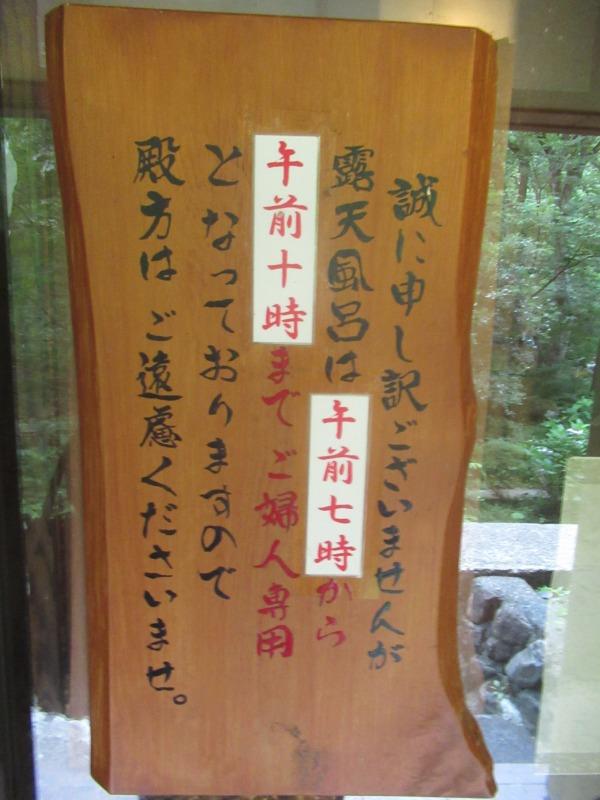 誠に申し訳ございませんが
露天風呂は午前七時から
午前十時までご婦人専用
となっておりますので
殿方はご遠慮くださいませ。